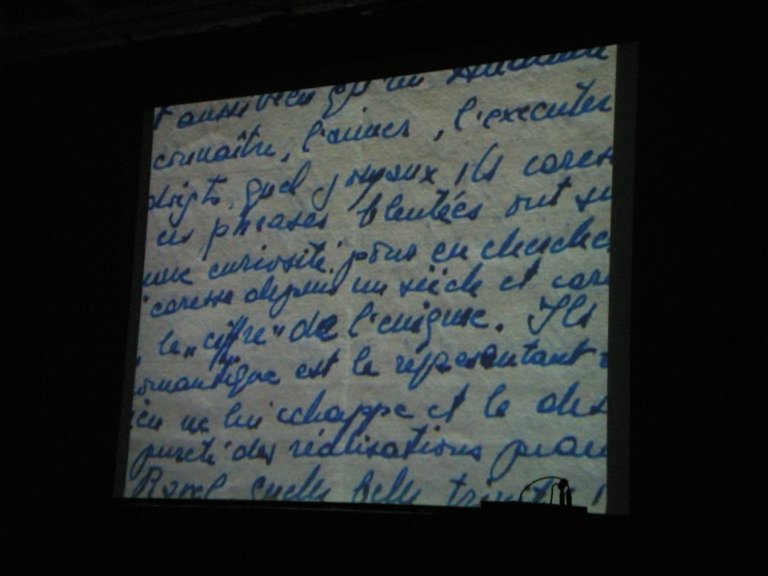 aussi bien qu'un
connaître, l'aimer, l'executer
doigts, quel joyaux, ils caress
ces phrases bleutées ont su
une curiosité pour en cherche
caresse depuis un siècle et car
le „ciffre" de l'enigme. Ils
omantique est le représentant
ien ne lui echappe et le des
pureté des réalisations pian
Ravel quelle belle trinité